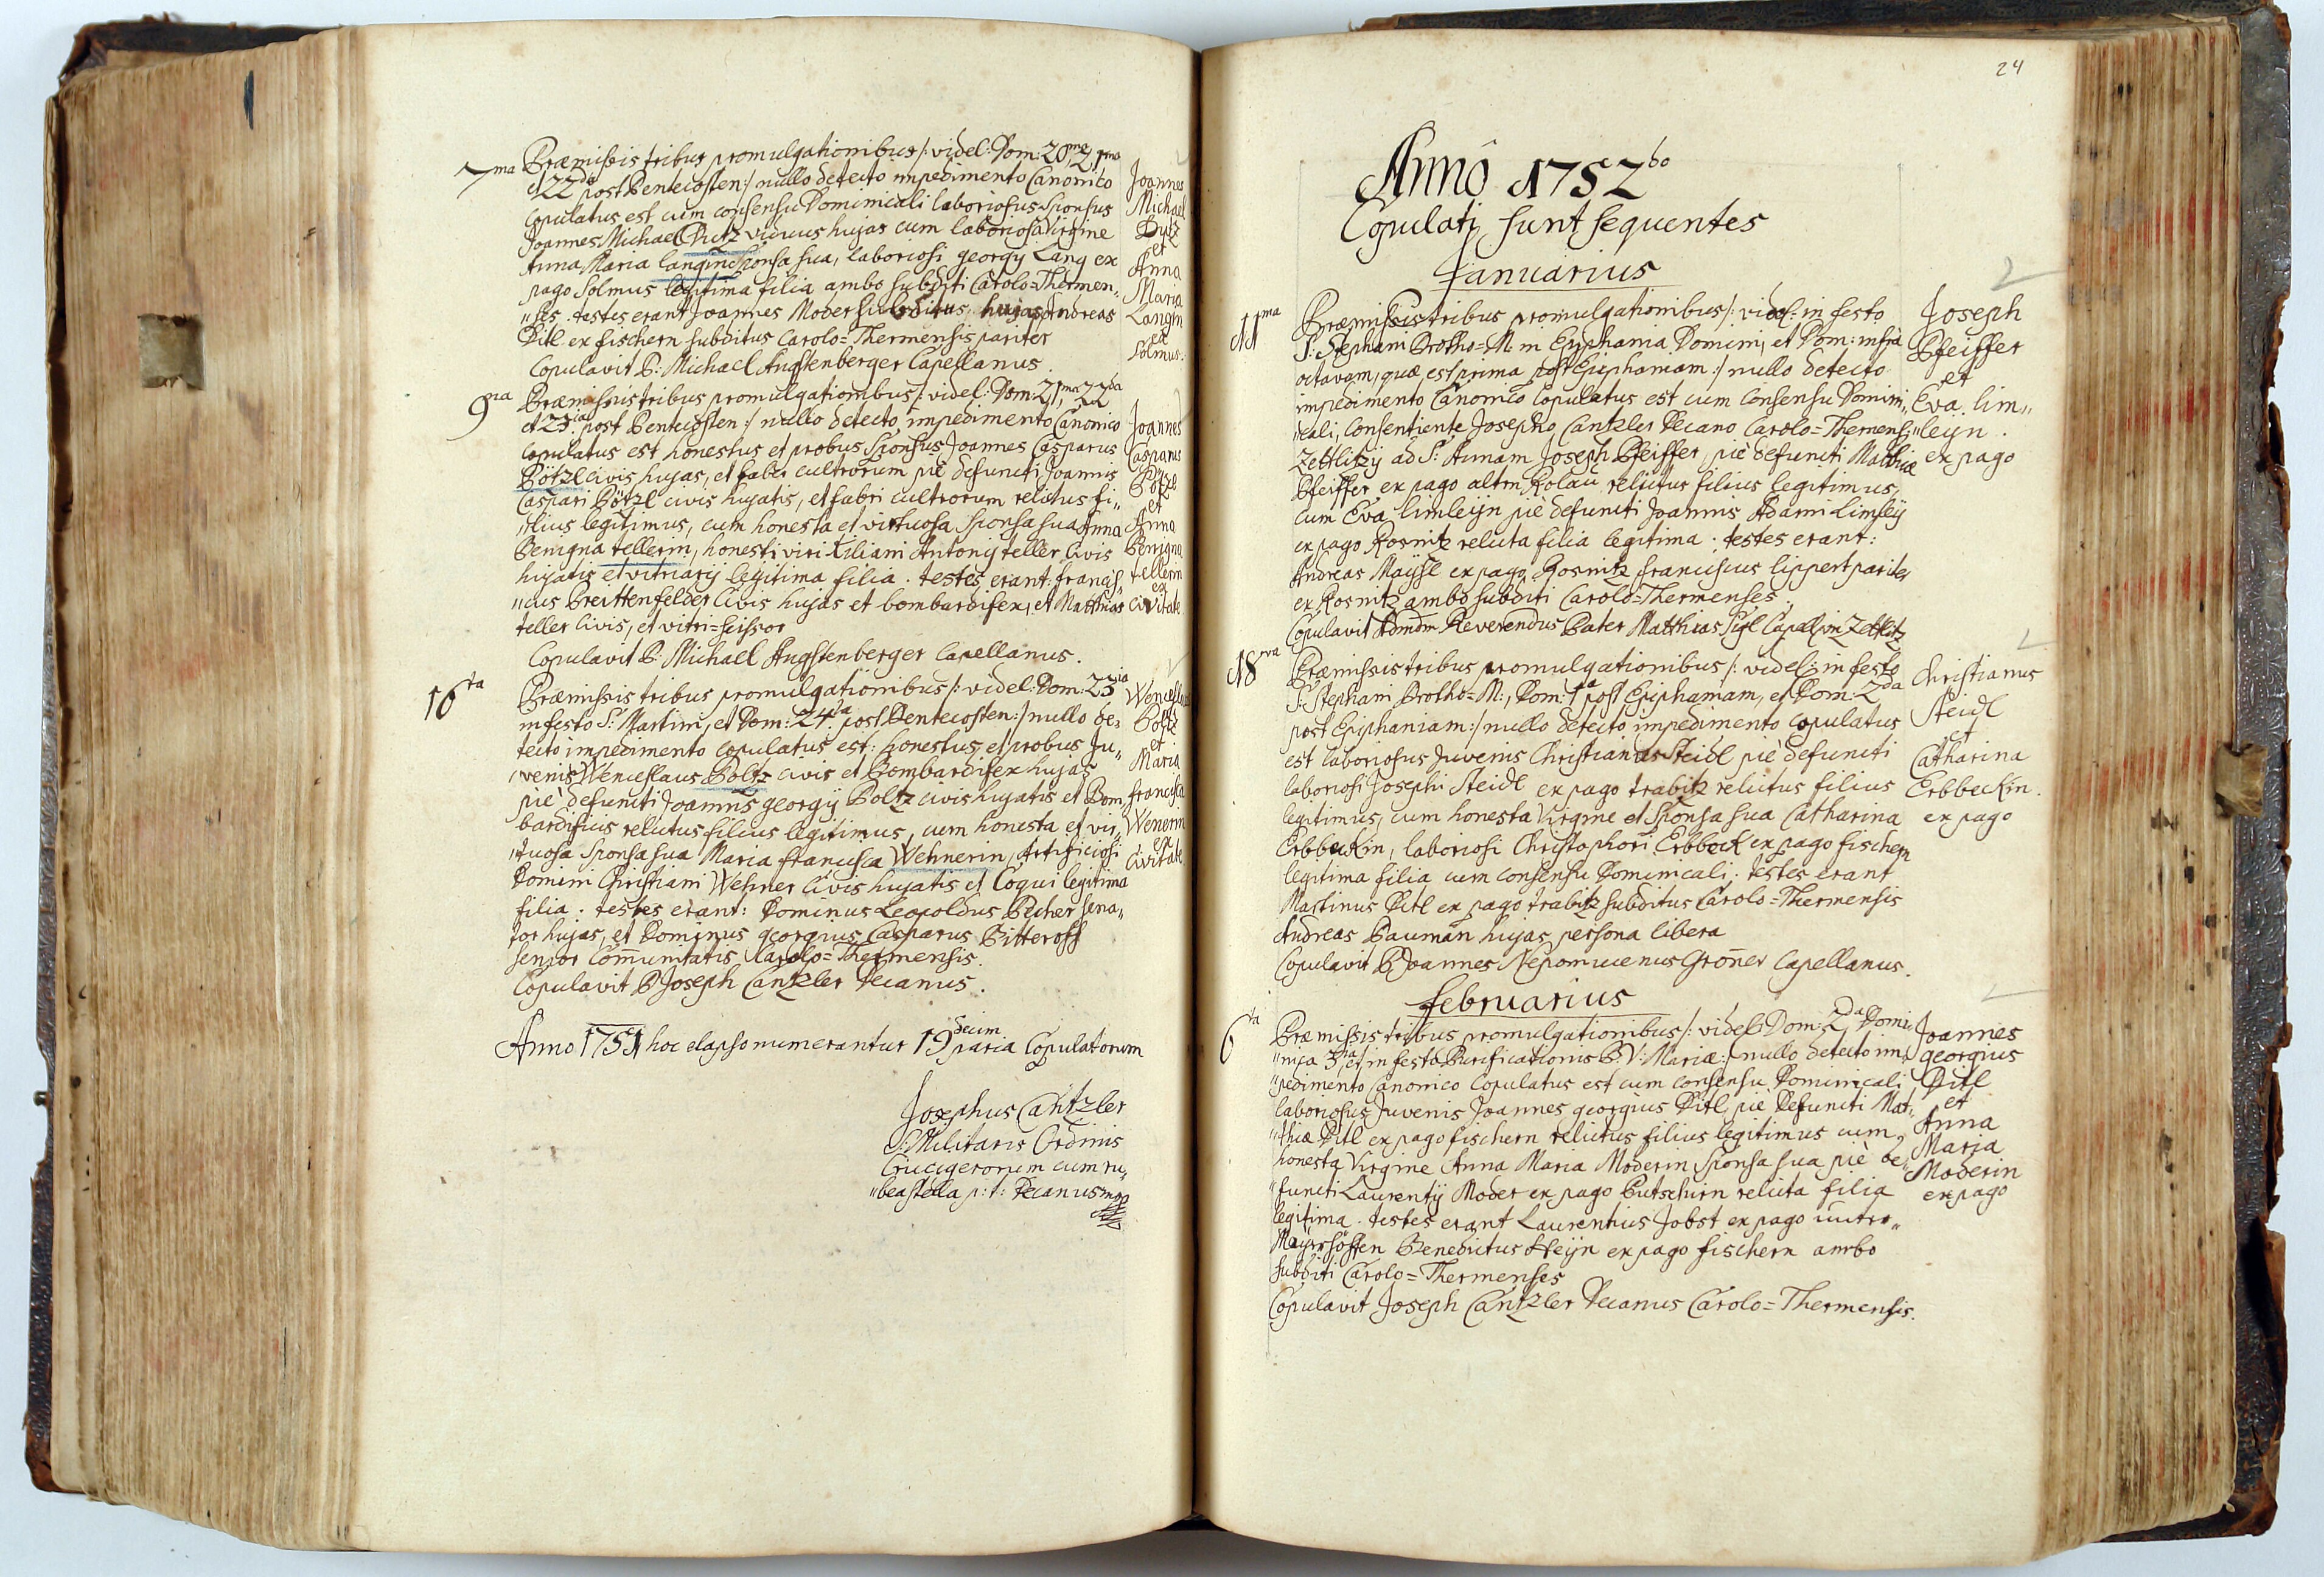 7ma Præmissis tribus promulgationibus /: videl: Dom: 20ma 21ma
et 22da post Pentecosten :/ nullo detecto impedimento Canonico
Copulatus est cum consensu Dominicali laboriosus Sponsus
Joannes Michael viduus hujas cum laboriosa Virgine
Anna Maria Langin Sponsa sua, laboriosi georgy Lang ex
pago Solmus legitima filia ambo subditi Carolo=Thermen„
„ses. testes erant Joannes Moder subditus, hujas Andreas
Pitl ex fischern subditus Carolo=Thermensis pariter
Copulavit P: Michael Angstenberger Capellanus.
Joannes
Michael
et
Anna
Maria
Langin
ex
Solmus.
9na Præmissis tribus promulgationibus /: videl: Dom: 21ma 22da
et 23tia post Pentecosten :/ nullo detecto impedimento Canonico
Copulatus est honestus et probus Sponsus Joannes Casparus
Pötzl civis hujas, et faber cultrorum pie defuncti Joannis
Caspari Pötzl civis hujatis, et fabri cultrorum relictus fi„
„lius legitimus, cum honesta et virtuosa Sponsa sua Anna
Benigna tellerin, honesti viri Kiliani Antonij teller civis
hujatis et vitriarij legitima filia. testes erant: francis„
„cus Breittenfelder Civis hujas et bombardifex, et Matthias
teller Civis, et vitri=scissor
Copulavit P: Michael Angstenberger Capellanus.
Joannes
Casparus
Pötzl
et
Anna
Benigna
tellerin
ex
Civitate
16ta Præmissis tribus promulgationibus /: videl: Dom: 23tia
in festo S: Martini, et Dom: 24ta post Pentecosten :/ nullo de„
tecto impedimento Copulatus est: honestus et probus Ju„
„venis Wenceslaus Poltz civis et Bombardifex hujas
pie defuncti Joannis georgij Poltz civis hujatis et Bom„
bardificis relictus filius legitimus, cum honesta et vir„
„tuosa Sponsa sua Maria francisca Wehnerin, Artificiosi
Domini Christiani Wehner Civis hujatis et Coqui legitima
filia. testes erant: Dominus Leopoldus Becher sena„
tor hujas, et Dominus georgius Casparus Bitteroff
senior Comunitatis Carolo=Thermensis.
Copulavit P Joseph Cantzler Decanus.
Poltz
et
Maria
francisca
Wenerin
ex
Civitate
Anno 1751 hoc elapso numerantur 19decim paria Copulatorum
Josephus Cantzler
S: Militaris Ordinis
Crucigerorum cum ru„
„bea stella p: t: Decanus mpp
24
Anno 1752do
Copulati sunt sequentes
Januarius
11ma Præmissis tribus promulgationibus /: videl: in festo
S: Stephani Protho=M. in Epyphania Domini, et Dom: infra
octavam, quæ est prima post Epiphaniam :/ nullo detecto
impedimento Canonico Copulatus est cum Consensu Domini„
„cali, Consentiente Josepho Cantzler Decano Carolo=Themensi
Zettlitzij ad S: Annam Joseph Pfeiffer pie defuncti Mathiæ
Pfeiffer ex pago alten Rolau relictus filius legitimus,
cum Eva limleijn pie defuncti Joannis Adami Limleij
ex pago Rosnitz relicta filia legitima. testes erant:
Andreas Maysl ex pago Rosnitz franciscus lippert pariter
ex Rosnitz ambo subditi Carolo=Thermenses.
Copulavit Admdm Reverendus Pater Matthias Sigl Capell in Zettlitz
Joseph
Pfeiffer
et
Eva lim„
„leijn.
ex pago
18va Præmissis tribus promulgationibus /: videl: in festo
S: Stephani Protho=M:, Dom: 1a post Epiphaniam, et Dom: 2da
post Epiphaniam :/ nullo detecto impedimento Copulatus
est laboriosus Juvenis Christianus Steidl pie defuncti
laboriosi Josephi Steidl ex pago trabitz relictus filius
legitimus, cum honesta Virgine et Sponsa sua Catharina
Erbbeckin, laboriosi Christophori Erbbeck ex pago fischern
legitima filia cum consensu Dominicali. testes erant
Martinus Pitl ex pago trabitz subditus Carolo=Thermensis
Andreas Bauman hujas persona libera
Copulavit P Joannes Nepomucenus Groner Capellanus.
Christianus
Steidl
et
Catharina
Erbbeckin.
ex pago
februarius
6ta Præmissis tribus promulgationibus /: videl: Dom: 2da Domi„
„nica 3tia et in festo Purificationis B: V: Mariæ :/ nullo detecto im„
„pedimento Canonico Copulatus est cum consensu Dominicali
laboriosus Juvenis Joannes georgius Pitl pie Defuncti Mat„
„thiæ Pitl ex pago fischern relictus filius legitimus cum
honesta Virgine Anna Maria Moderin Sponsa sua pie de„
„functi Laurentij Moder ex pago Putschirn relicta filia
legitima. testes erant Laurentius Jobst ex pago unter„
Mayerhöffen Benedictus Heijn ex pago fischern ambo
subditi Carolo=Thermenses
Copulavit Joseph Cantzler Decanus Carolo=Thermensis.
Joannes
georgius
Pitl
et
Anna
Maria
Moderin
ex pago